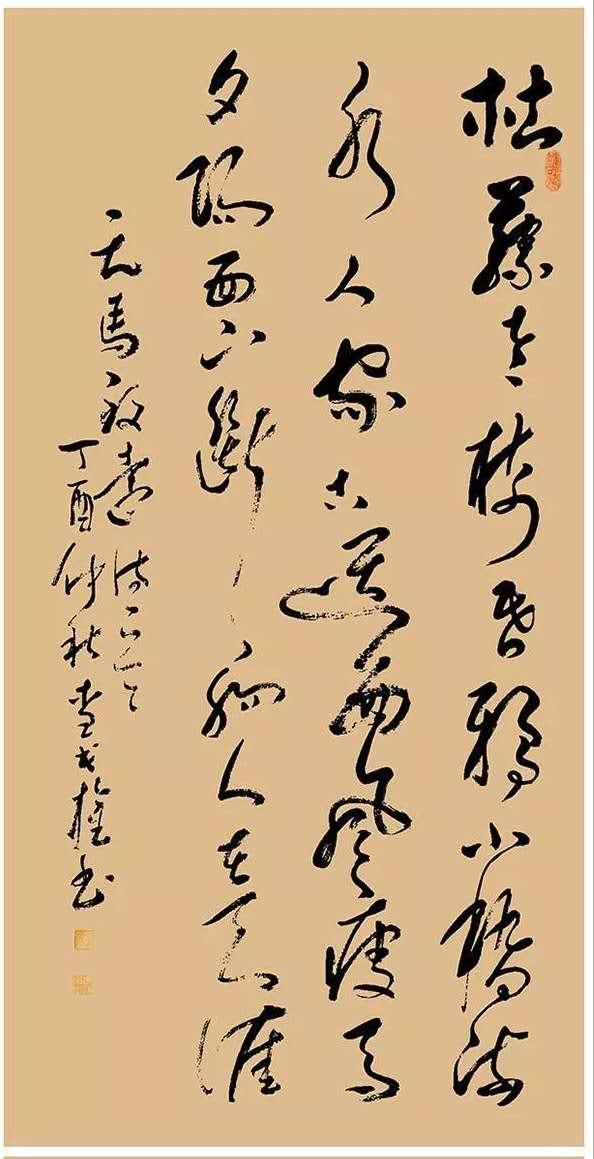 枯藤老樹昏鴉小橋流
水人家古道西風瘦馬
夕陽西下斷腸人在天涯
元馬致遠
丁酉仲秋書